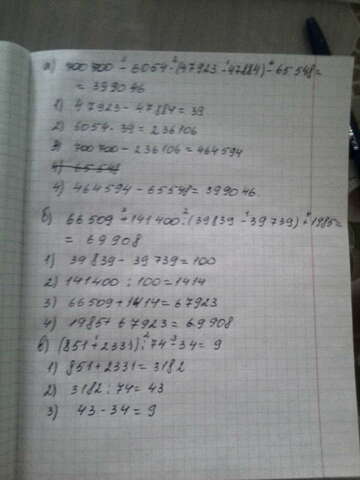 а) 700 700 - 6054 · (47923 - 47884) - 65 548 =
= 399046
1) 47923 - 47884 = 39
2) 6054 · 39 = 236106
3) 700 700 - 236106 = 464594
4) 65 548
4) 464594 - 65548 = 399046.
б) 66 509 + 141 400 : (39839 - 39739) + 1985 =
= 69908
1) 39839 - 39739 = 100
2) 141400 : 100 = 1414
3) 66509 + 1414 = 67923
4) 1985 + 67923 = 69908
в) (851 + 2331) : 74 - 34 = 9
1) 851 + 2331 = 3182
2) 3182 : 74 = 43
3) 43 - 34 = 9